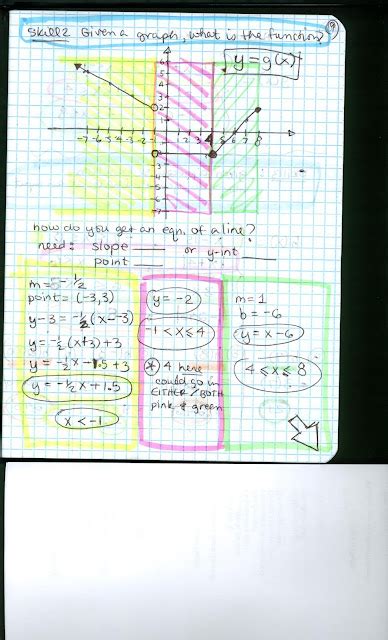 9
Skill 2 Given a graph, what is the function?
y = g(x)
6
5
4
3
2
-7 -6 -5 -4 -3 -2 1 2 3 5 6 7 8
how do you get an eqn. of a line?
need: slope ___ or y-int ___
point ___
m = -1/2
point = (-3,3)
y-3 = -1/2(x--3)
y = -1/2(x+3)+3
y = -1/2x + 1.5 + 3
y = -1/2x + 1.5
x < -1
y = -2
-1 < x ≤ 4
* 4 here
could go in
EITHER/BOTH
pink & green
m = 1
b = -6
y = x - 6
4 ≤ x ≤ 8